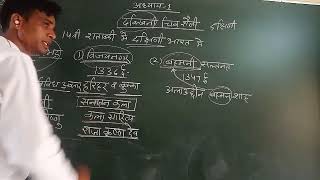 अध्याय-1
दक्खिनी चित्र शैली
दक्षिणी
14वीं शताब्दी में दक्षिणी भारत में
(1) विजयनगर
1336 ई.
हरिहर व बुक्का
सनातन कला
कला साहित्य
राजा कृष्ण देव
(2) बहमनी सल्तनत
1347 ई.
अलाउद्दीन बहमन शाह